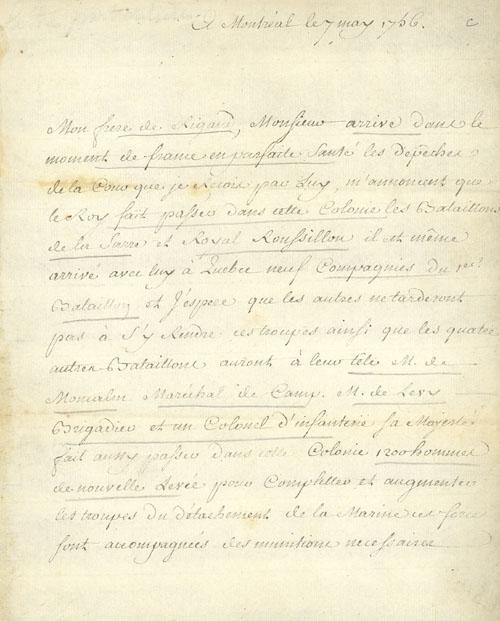 A Montréal le 7 may 1756.
Mon frere de Rigaud, Monsieur arrive dans le
moment de france en parfaite Santé les Depêches
de la Cour que je Reçois par Luy, m'annoncent que
le Roy fait passer dans cette Colonie les Bataillons
de la Sarre et Royal Roussillon il est même
arrivé avec luy à Quebec neuf Compagnies du 1er
Bataillon et J'espere que les autres ne tarderont
pas à s'y Rendre ces troupes ainsi que les quatre
autres Bataillons auront à leur tête M. de
Momcalm Maréchal de Camp. M. de Levy
Brigadier et un Colonel d'infanterie sa Majesté
fait aussy passer dans cette Colonie 1200 hommes
de nouvelle Levée pour Completter et augmenter
les troupes du détachement de la Marine ces forces
sont accompagnées des munitions necessaires